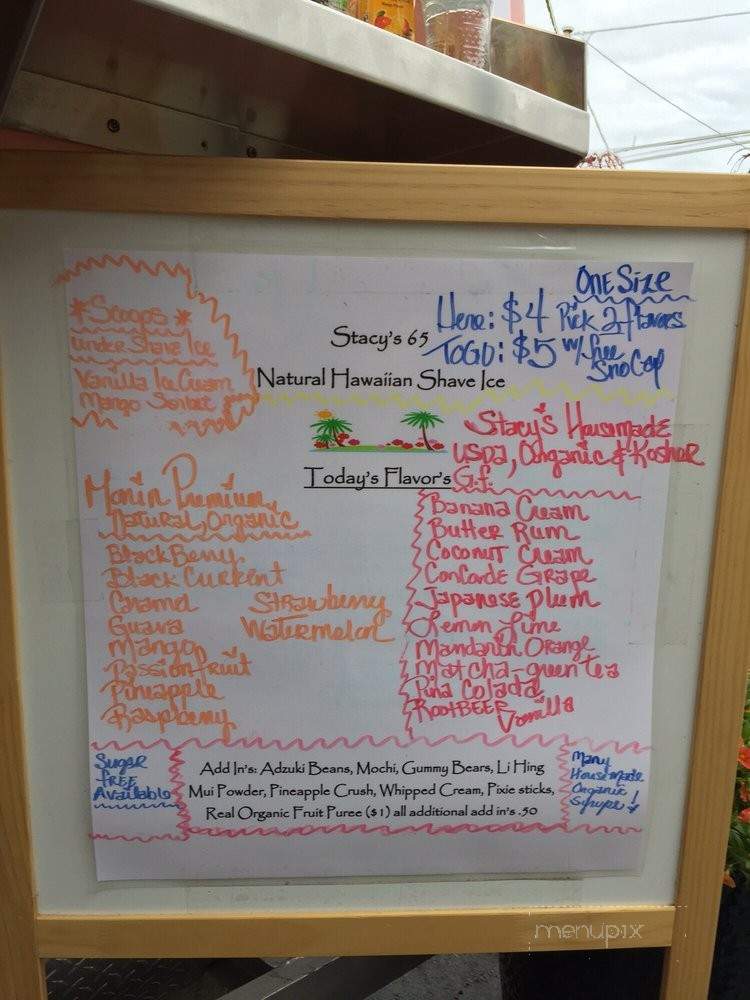 *Scoops*
under Shave Ice
Vanilla Ice Cream
Mango Sorbet
Stacy's 65
Natural Hawaiian Shave Ice
One Size
Here: $4 Pick 2 flavors
ToGo: $5 w/ free
SnoCap
Today's Flavor's
Stacy's Housmade
USDA, Organic & Kosher
G.f.
Monin Premium
Natural, Organic
BlackBerry
Black Current
Caramel
Guava
Mango
Passionfruit
Pineapple
Raspberry
Strawberry
Watermelon
Banana Cream
Butter Rum
Coconut Cream
Concorde Grape
Japanese Plum
Lemon Lime
Mandarin Orange
Matcha-green tea
Pina Colada
RootBEER
Vanilla
Sugar
free
Available
Add In's: Adzuki Beans, Mochi, Gummy Bears, Li Hing
Mui Powder, Pineapple Crush, Whipped Cream, Pixie sticks,
Real Organic Fruit Puree ($1) all additional add in's .50
Many
Housemade
Organic
Syrups!
menupix